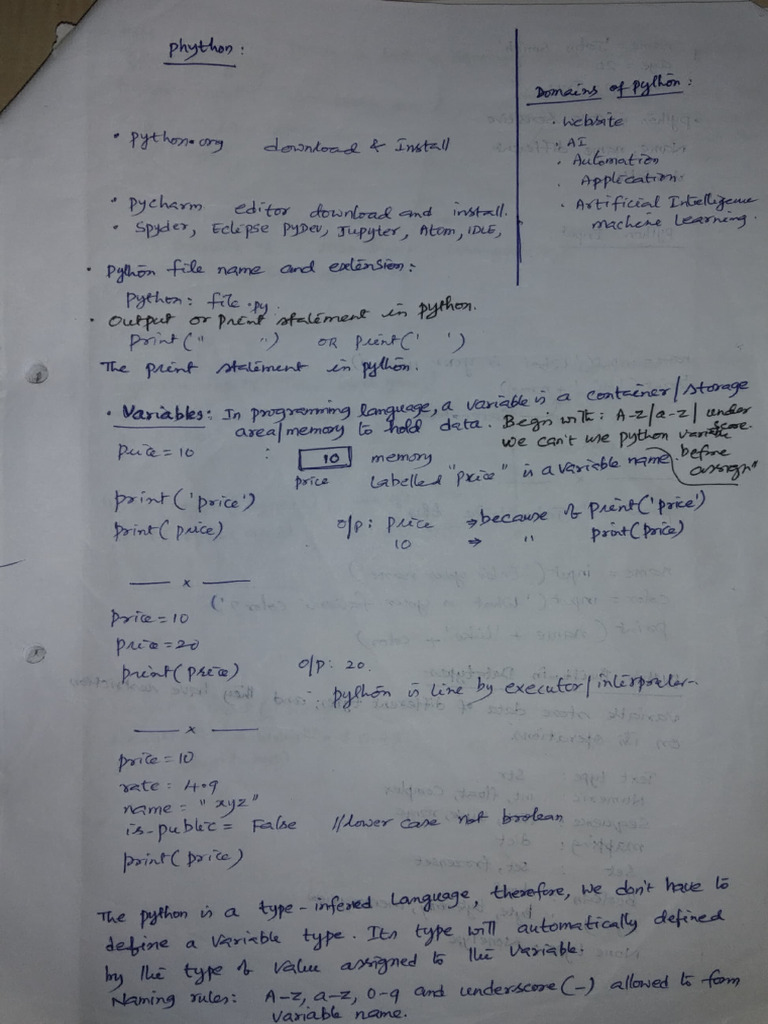 phython:
• python.org download & Install
Domains of python:
• website
• AI
• Automation
• Application
• Artificial Intelligence
machine Learning.
• pycharm editor download and install.
• Spyder, Eclipse PyDev, Jupyter, Atom, IDLE,
• python file name and extension:
Python: file.py
• Output or Print statement in python.
print(" ") OR print(' ')
The print statement in python.
• Variables: In programming language, a variable is a container/storage
area/memory to hold data. Begin with: A-Z/a-z/ under score.
we can't use python variable before assign"
price = 10 : 10 memory
price Labelled "price" is a variable name.
print('price')
print(price)
o/p: price → because of print('price')
10 → " print(price)
— x —
price = 10
price = 20
print(price) o/p: 20.
python is line by executor/interpreter
— x —
price = 10
rate : 4.9
name = "xyz"
is-public = False //lower case not brolean
print(price)
The python is a type-infered Language, therefore, we don't have to
define a variable type. Its type will automatically defined
by the type of value assigned to the variable.
Naming rules: A-Z, a-z, 0-9 and underscore(-) allowed to form
variable name.